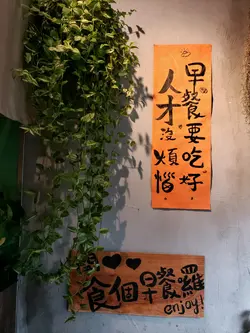 早餐要吃好
人才沒煩惱
食個早餐羅
enjoy!